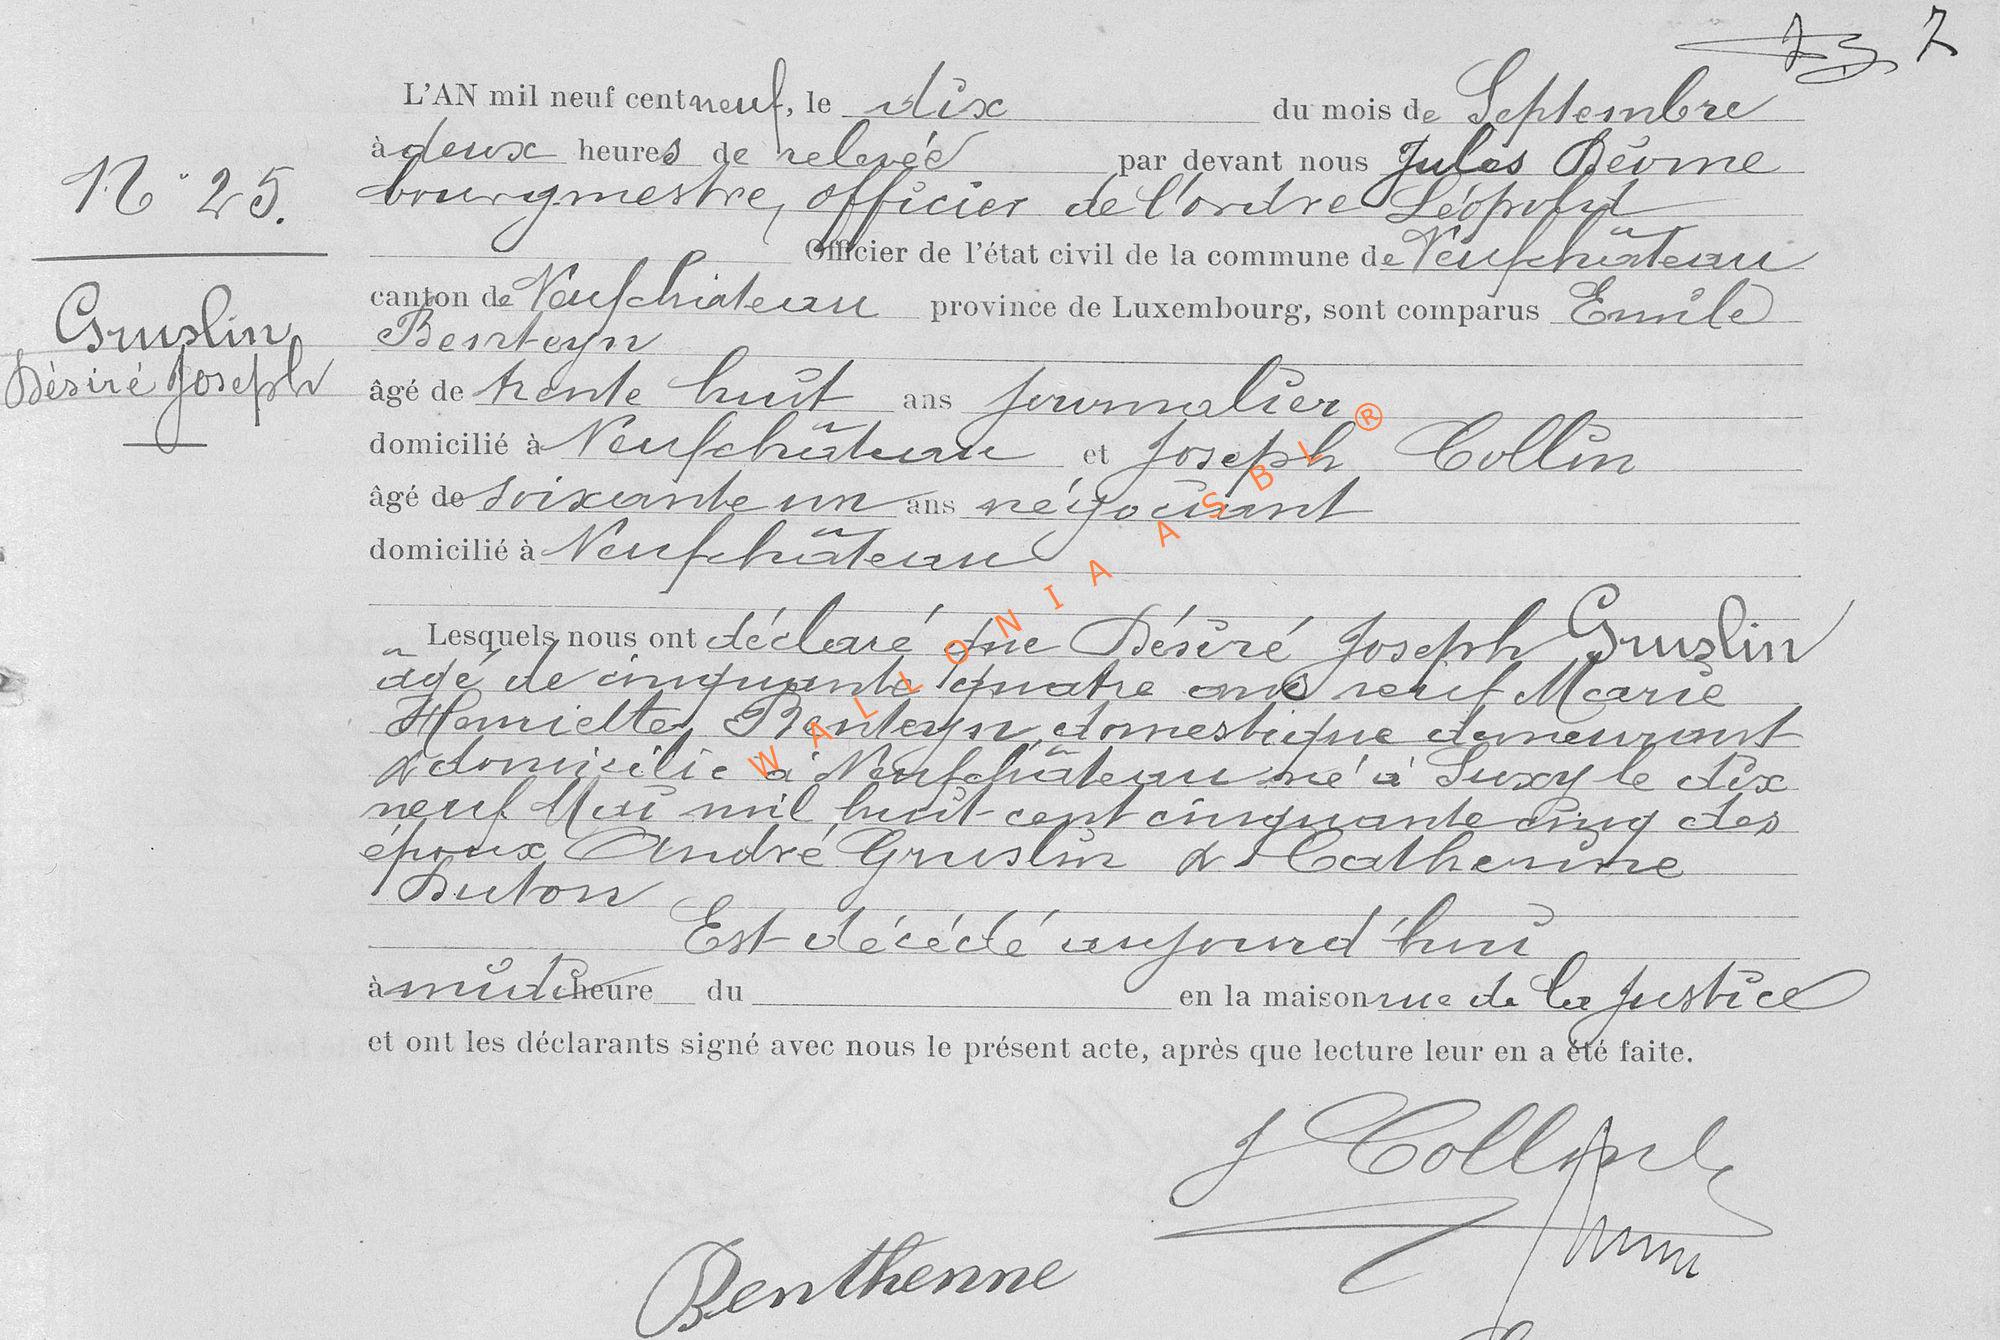 L'AN mil neuf cent neuf, le dix du mois de Septembre
à deux heures de relevée par devant nous Jules
bourgmestre, officier de l'ordre Léopold
Officier de l'état civil de la commune de Neufchâteau
canton de Neufchâteau province de Luxembourg, sont comparus Emile
Benteyn
âgé de trente huit ans journalier
domicilié à Neufchâteau et Joseph Collin
âgé de soixante un ans négociant
domicilié à Neufchâteau
Lesquels nous ont déclaré que Désiré Joseph Gruslin
âgé de cinquante quatre ans veuf Marie
Henriette Benteyn, domestique demeurant
& domicilié à Neufchâteau né à Suxy le dix
neuf Mai mil huit cent cinquante cinq des
époux André Gruslin & Catherine
Duton
Est décédé aujourd'hui
à midi heure du en la maison rue de la Justice
et ont les déclarants signé avec nous le présent acte, après que lecture leur en a été faite.
J Collin
Benthenne
N° 25.
Gruslin
Désiré Joseph
7
WALLONIA ASBL ®